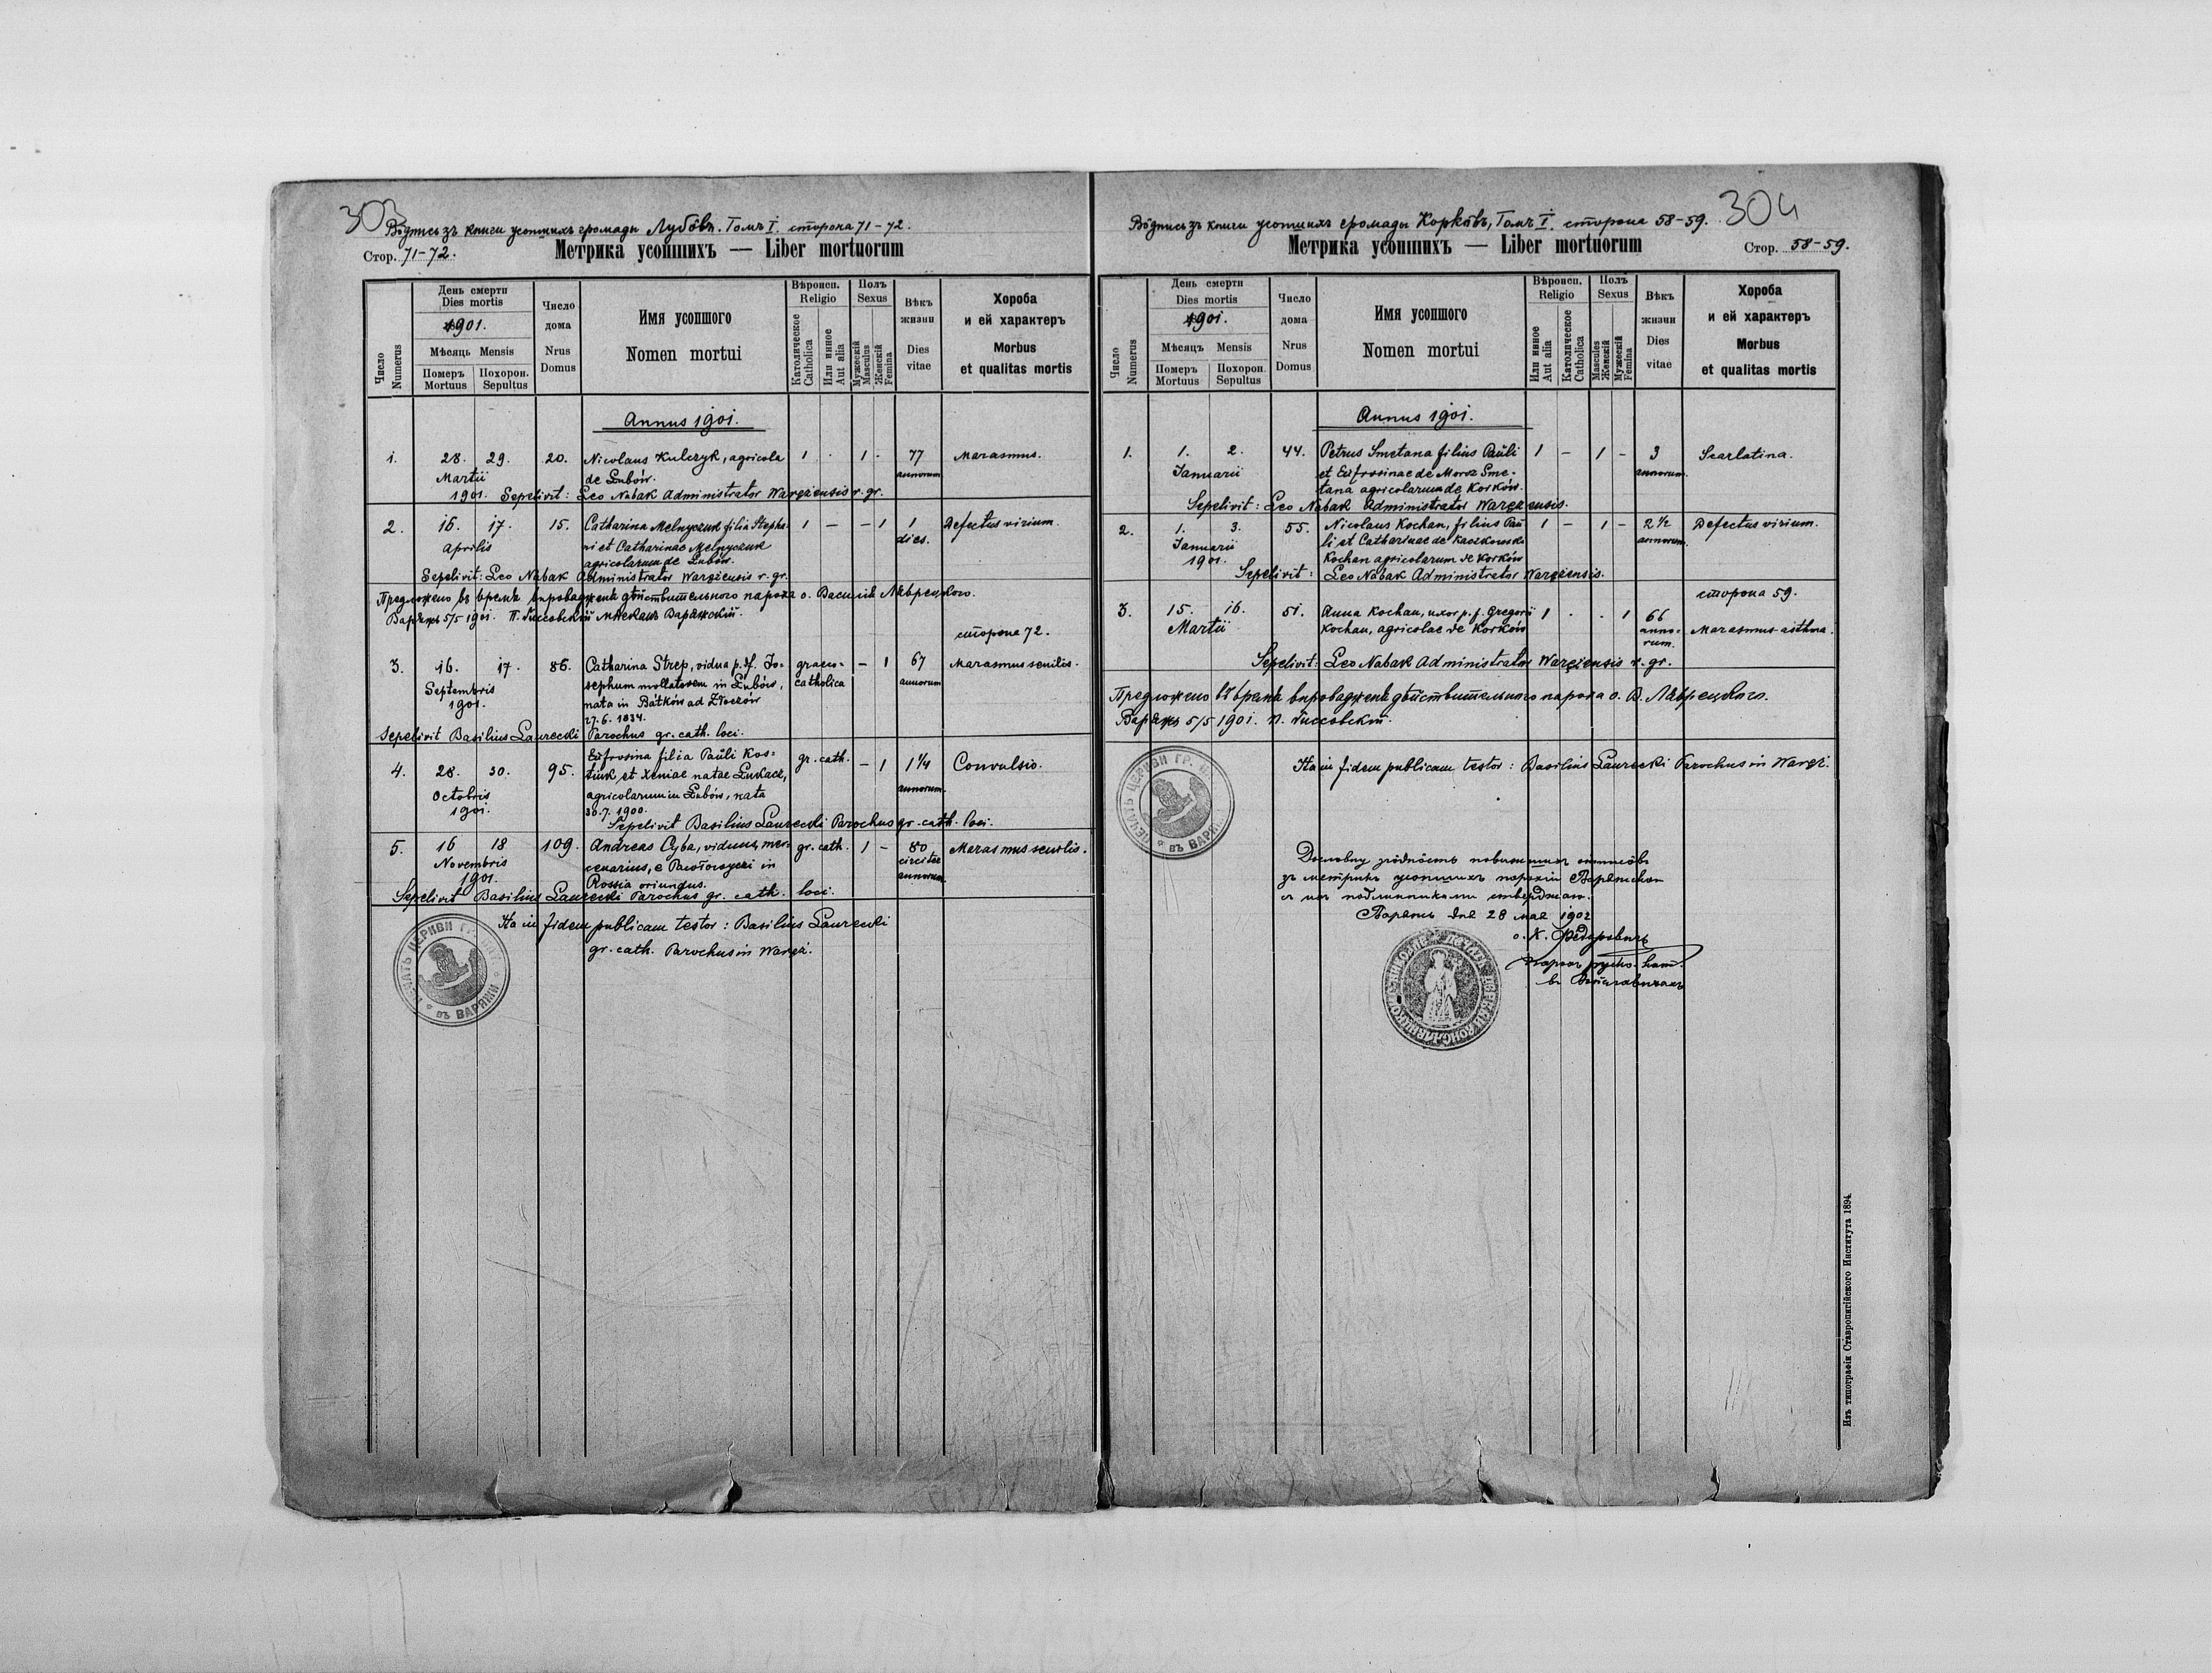 303
Вôдпись зъ книги усопшихъ громады Лубôвъ. Томъ I. сторона 71-72.
Стор. 71-72.
Метрика усопшихъ — Liber mortuorum
Число Numerus
День смерти
Dies mortis
1901.
Мѣсяць Mensis
Померъ Mortuus
Похорон. Sepultus
Число дома
Nrus Domus
Имя усопшого
Nomen mortui
Вѣроисп. Religio
Католическое Catholica
Или инное Aut alia
Полъ Sexus
Мужескій Masculus
Женскій Femina
Вѣкъ жизни
Dies vitae
Хороба
и ей характеръ
Morbus
et qualitas mortis
Annus 1901.
1. 28. 29. 20. Nicolaus Kulczyk, agricola 1 . 1 . 77 Marasmus.
Martii de Łubów. annorum
1901. Sepelivit: Leo Nabak Administrator Waręzensis r. gr.
2. 16. 17. 15. Catharina Melnyczuk filia Stepha- 1 — — 1 1 Defectus virium.
Aprilis ni et Catharinae Melnyczuk dies.
agricolarum de Łubów.
Sepelivit: Leo Nabak Administrator Waręzensis r. gr.
Предложено въ время впроваджень дѣйствительного пароха о. Василія Лаврецкого.
Варяжъ 5/5 1901.
сторона 72.
3. 16. 17. 86. Catharina Strep, vidua p. def. Jo- graeco- — 1 67 Marasmus senilis.
Septembris sephum molitorem in Łubów, catholica annorum
1901. nata in Batków ad Złoczów
27.6. 1834.
Sepelivit Basilius Laurecki Parochus gr. cath. loci.
4. 28. 30. 95. Eufrosina filia Pauli Kos- gr. cath. — 1 1¼ Convulsio.
Octobris tiuk et Xeniae natae Łukacz, annorum.
1901. agricolarum in Łubów, nata
30.7. 1900.
Sepelivit Basilius Laurecki Parochus gr. cath. loci.
5. 16 18 109. Andreas Cyba, viduus, mer- gr. cath. 1 — 80 Marasmus senilis.
Novembris cenarius, e circiter
1901. Rossia oriundus. annorum.
Sepelivit Basilius Laurecki Parochus gr. cath. loci.
Ita in fidem publicam testor: Basilius Laurecki
gr. cath. Parochus in Waręż.
304
Вôдпись зъ книги усопшихъ громады Коркôвъ, Томъ I. сторона 58-59.
Метрика усопшихъ — Liber mortuorum
Стор. 58-59.
Число Numerus
День смерти
Dies mortis
1901.
Мѣсяцъ Mensis
Померъ Mortuus
Похорон. Sepultus
Число дома
Nrus Domus
Имя усопшого
Nomen mortui
Вѣроисп. Religio
Или инное Aut alia
Католическое Catholica
Полъ Sexus
Mascules Женскій
Мужескій Femina
Вѣкъ жизни
Dies vitae
Хороба
и ей характеръ
Morbus
et qualitas mortis
Annus 1901.
1. 1. 2. 44. Petrus Smetana filius Pauli 1 — 1 — 3 Scarlatina.
Januarii et Eufrosinae de Moroz Sme- annorum.
tana agricolarum de Korków.
Sepelivit: Leo Nabak Administrator Waręzensis.
2. 1. 3. 55. Nicolaus Kochan, filius Pau- 1 — 1 — 2½ Defectus virium.
Januarii li et Catharinae de Kaczkowski annorum.
1901. Kochan agricolarum de Korków
Sepelivit: Leo Nabak Administrator Waręzensis.
сторона 59.
3. 15. 16. 51. Anna Kochan, uxor p. f. Gregorii 1 . . 1 66
Martii Kochan, agricolae de Korków anno- Marasmus-asthma.
rum.
Sepelivit: Leo Nabak Administrator Waręzensis r. gr.
Предложено въ время впроваджень дѣйствительного пароха о. В. Лаврецкого.
Варяжъ 5/5 1901.
Ita in fidem publicam testor: Basilius Laurecki Parochus in Waręż.
зъ метрикъ усопшихъ парохіи
Варяжъ дня 28 мая 1902
Изъ типографіи Ставропигійского Института 1894.